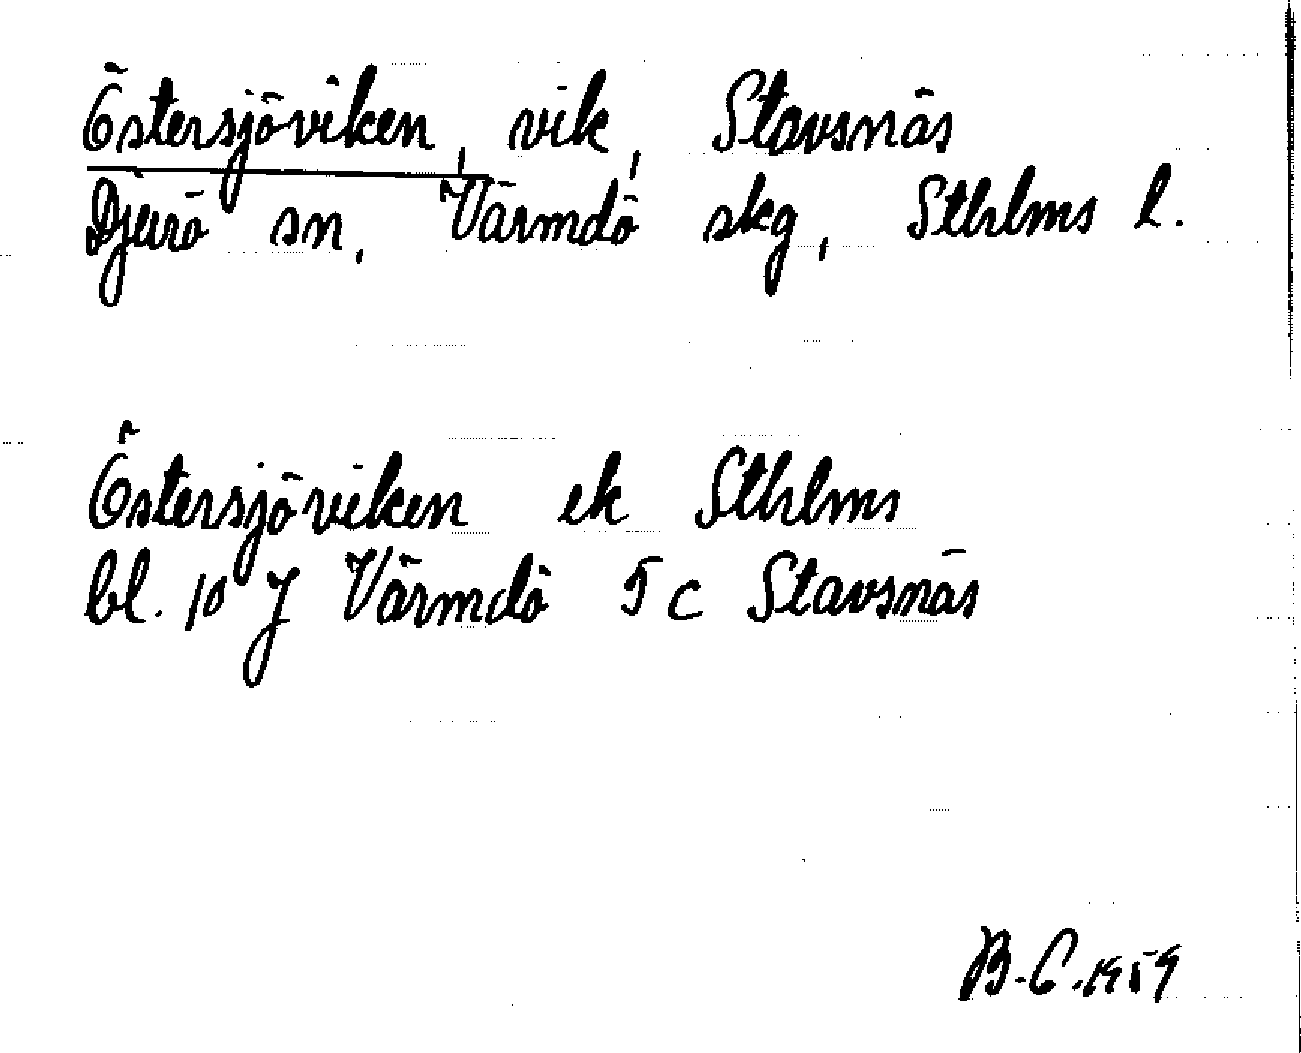 Östersjöviken, vik, Stavsnäs
Djurö sn, Värmdö skg, Sthlms l.
Östersjöviken ek Sthlms
bl. 10 J Värmdö 5 c Stavsnäs
B.C. 1959